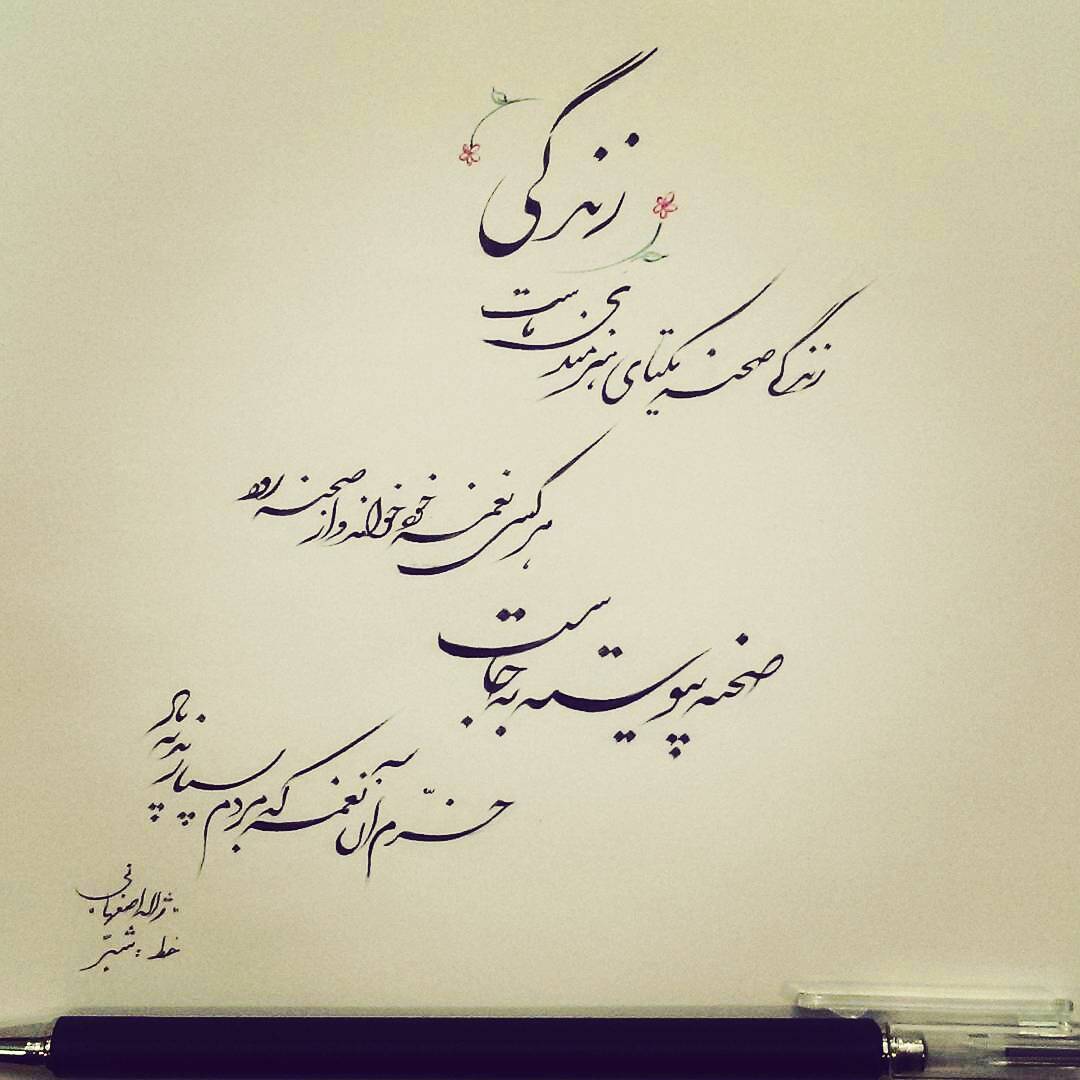 زندگی
زندگی صحنه یکتای هنرمندی ماست
هر کسی نغمه خود خواند و از صحنه رود
صحنه پیوسته به جاست
خرّم آن نغمه که مردم بسپارند به یاد
ژاله اصفهانی
خط : شبّر